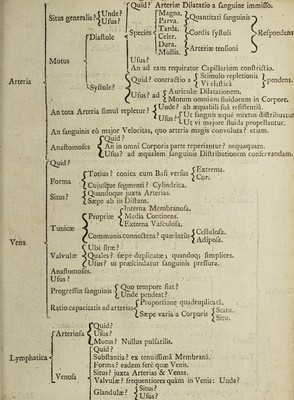 Quid? Arteriæ Dilatatio a sanguine immisso.
Situs generalis? Unde? Usus?
Diastole
Species
Magna,
Parva.
Tarda.
Celer.
Dura.
Mollis.
Quantitati sanguinis
Cordis systoli
Arteriæ tensioni
Respondens
Usus?
An ad eam requiratur Capillarium constrictio.
Motus
Systole?
Quid? contractio a
Stimulo repletionis
Vi elastica
pendens.
Usus? ad
Auriculæ Dilatationem.
Motum omnium fluidorum in Corpore.
Arteria
An tota Arteria simul repletur?
Unde? ab æquabili sua resistentiâ.
Usus?
Ut sanguis æquè mixtus distribuatur
Ut vi majore fluida propellantur.
An sanguinis eò major Velocitas, quo arteria magis convoluta? etiam.
Anastomoses
Quid?
An in omni Corporis parte reperiantur? nequaquam.
Usus? ad æqualem sanguinis Distributionem conservandam.
Quid?
Forma
Totius? conica cum Basi versus
Extrema.
Cor.
Cujusque segmenti? Cylindrica.
Situs?
Quandoque juxta Arterias.
Sæpe ab iis Distans.
Tunicæ
Propriæ
Interna Membranosa.
Media Continens.
Externa Vasculosa.
Communis connectens? quæ intùs
Cellulosa.
Adiposa.
Vena
Valvulæ
Ubi sitæ?
Quales? sæpe duplicatæ; quandoq; simplices.
Usus? ut præscindatur sanguinis pressura.
Anastomoses.
Usus?
Progressus sanguinis
Quo tempore fiat?
Unde pendent?
Ratio capacitatis ad arterias
Proportione quadruplicatâ.
Sæpe varia a Corporis
Statu.
Situ.
Lymphatica
Arteriosa
Quid?
Usus?
Motus? Nullus pulsatilis.
Venosa
Quid?
Substantia? ex tenuissimâ Membranâ.
Forma? eadem ferè quæ Venis.
Situs? juxta Arterias & Venas.
Valvulæ? frequentiores quàm in Venis: Unde?
Glandulæ?
Situs?
Usus?